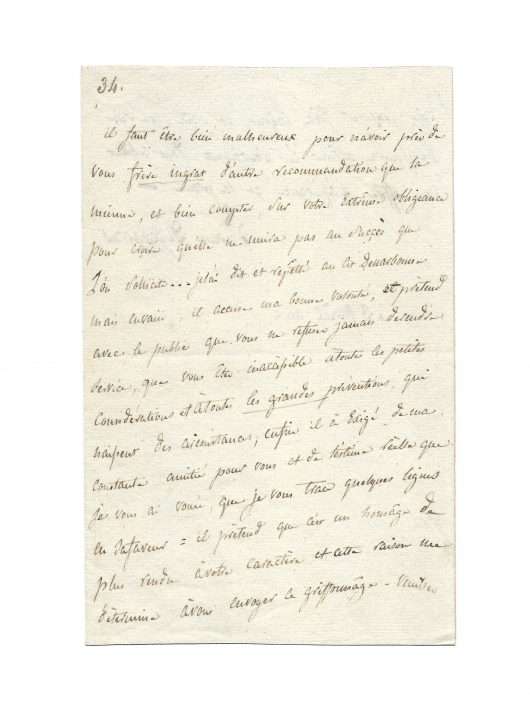 34.
il faut être bien malheureux pour n'avoir près de
vous frère ingrat d'autre recommandation que la
mienne, et bien compter sur votre extrême obligeance
pour croire quelle ne nuira pas au succès que
l'on sollicite... jelai dit et répetté au Cte Denarbonne
mais envain, il accuse ma bonne volonté, et prétend
avec le public que vous ne refusez jamais derendre
service, que vous êtes inaccessible atoutes les petites
considerations et àtoutes les grandes préventions, qui
naissent des circonstances; enfin il à éxigé de ma
constante amitié pour vous et de l'estime réelle que
je vous ai vouée que je vous trace quelques lignes
en safaveur = il prétend que c'est un homage de
plus rendu àvotre caractère et cette raison me
détermine àvous envoyer ce griffonnage - veuillez